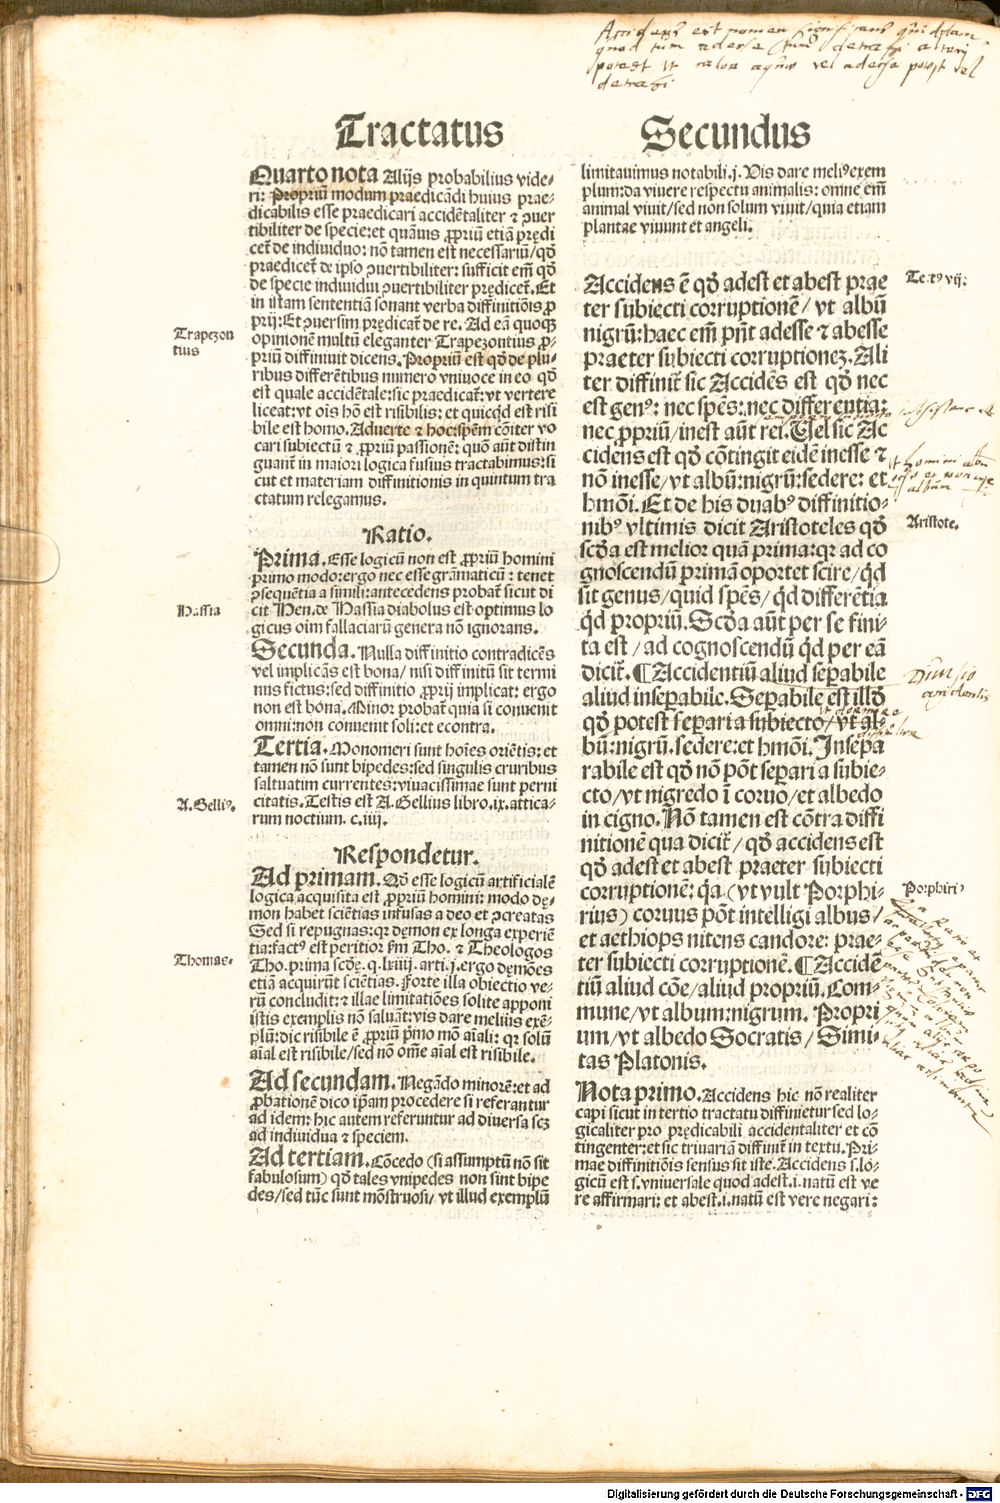 Tractatus
Secundus
Quarto nota Alijs probabilius vide⸗
ri: Propriũ modum praedicãdi huius prae⸗
dicabilis esse praedicari accidẽtaliter ⁊ ꝯuer
tibiliter de specie: et quãuis ꝓpriũ etiã prędi
cet᷑ de indiuiduo: nõ tamen est necessariũ/ qđ
praedicet᷑ de ipso ꝯuertibiliter: sufficit em̃ qđ
de specie indiuidui ꝯuertibiliter prędicet᷑. Et
in istam sententiã sonant verba diffinitiõis ꝓ
prij: Et ꝯuersim prędicat᷑ de re. Ad eã quoqꝫ
opinionem multũ eleganter Trapezontius ꝓ⸗
priũ diffiniuit dicens. Propriũ est qđ de plu⸗
ribus differẽtibus numero vniuoce in eo qđ
est quale accidẽtale: sic praedicat᷑: vt vertere
liceat: vt oĩs hõ est risibilis: et quicqđ est risi
bile est homo. Aduerte ⁊ hoc: ispẽm cõiter vo
cari subiectũ ⁊ ꝓpriũ passionẽ: quõ aũt distin
guant᷑ in maiori logica fusius tractabimus: si
cut et materiam diffinitionis in quintum tra
ctatum relegamus.
Trapezon
tius
Ratio.
Prima. Esse logicũ non est ꝓpriũ homini
primo modo: ergo nec esse grãmaticũ: tenet
ꝯsequẽtia a simili: antecedens probat᷑ sicut di
cit Hen. de Hassia diabolus est optimus lo
gicus oim̃ fallaciarũ genera nõ ignorans.
Hassia
Secunda. Nulla diffinitio contradicẽs
vel implicãs est bona/ nisi diffinitũ sit termi
nus fictus: sed diffinitio ꝓprij implicat: ergo
non est bona. Minor probat᷑ quia si conuenit
omni: non conuenit soli: et econtra.
Tertia. Monomeri sunt hoĩes oriẽtis: et
tamen nõ sunt bipedes: sed singulis cruribus
saltuatim currentes: viuacissimae sunt perni
citatis. Testis est A. Gellius libro. ix. attica⸗
rum noctium. c. iiij.
A. Gelliꝰ.
Respondetur.
Ad primam. Qđ esse logicũ artificialẽ
logica acquisita est ꝓpriũ homini: modo dę⸗
mon habet sciẽtias infusas a deo et ꝯcreatas
Sed si repugnas: qꝛ dęmon ex longa experiẽ
tia: factꝰ est peritior ẜm Tho. ⁊ Theologos
Tho. prima scđę. q. lxiiij. arti. j. ergo dęmões
etiã acquirũt sciẽtias. Forte illa obiectio ve⸗
rũ concludit: ⁊ illae limitatiões solite apponi
istis exemplis nõ saluãt: vis dare melius exẽ⸗
plũ: dic risibile ẽ ꝓpriũ p̃mo mõ aĩali: qꝛ solũ
aĩal est risibile/ sed nõ om̃e aĩal est risibile.
Thomas⸗
Ad secundam. Negãdo minorẽ: et ad
ꝓbationẽ dico ip̃am procedere si referantur
ad idem: hic autem referuntur ad diuersa scꝫ
ad indiuidua ⁊ speciem.
Ad tertiam. Cõcedo (si assumptũ nõ sit
fabulosum) qđ tales vnipedes non sint bipe
des/ sed tũc sunt mõstruosi/ vt illud exemplũ
limitauimus notabili. j. Vis dare meliꝰ exem
plum: da viuere respectu animalis: omne em̃
animal viuit/ sed non solum viuit/ quia etiam
plantae viuunt et angeli.
Accidens ẽ qđ adest et abest prae
ter subiecti corruptionẽ/ vt albũ
nigrũ: haec em̃ pñt adesse ⁊ abesse
praeter subiecti corruptionez. Ali
ter diffinit᷑ sic Accidẽs est qđ nec
est genꝰ: nec spẽs: nec differentia:
nec ꝓpriũ/ inest aũt rei. Vel sic Ac
cidens est qđ cõtingit eidẽ inesse ⁊
nõ inesse/ vt albũ: nigrũ: sedere: et
hmõi. Et de his duabꝰ diffinitio⸗
nibꝰ vltimis dicit Aristoteles qđ
scđa est melior quã prima: qꝛ ad co
gnoscendũ primã oportet scire/ qđ
sit genus/ quid spẽs/ qđ differẽtia
qđ propriũ. Scđa aũt per se fini⸗
ta est/ ad cognoscendũ qđ per eã
dicit᷑. ¶ Accidentiũ aliud sepabile
aliud insepabile. Sepabile est illđ
qđ potest separi a subiecto/ vt al⸗
bũ: nigrũ. sedere: et hmõi. Insepa
rabile est qđ nõ põt separi a subie⸗
cto/ vt nigredo ĩ coruo/ et albedo
in cigno. Nõ tamen est cõtra diffi
nitionẽ qua dicit᷑/ qđ accidens est
qđ adest et abest praeter subiecti
corruptionẽ: q̃a (vt vult Porphi⸗
rius) coruus põt intelligi albus/
et aethiops nitens candore: prae⸗
ter subiecti corruptionẽ. ¶ Accidẽ
tiũ aliud cõe/ aliud propriũ. Com⸗
mune/ vt album: nigrum. Propri
um/ vt albedo Socratis/ Simi⸗
tas Platonis.
Te.tꝰ vij:
Aristote.
Porphiriꝰ
Nota primo. Accidens hic nõ realiter
capi sicut in tertio tractatu diffinietur sed lo⸗
gicaliter pro prędicabili accidentaliter et cõ
tingenter: et sic trinariã diffinit᷑ in textu. Pri⸗
mae diffinitiõis sensus sit iste. Accidens s. lo⸗
gicũ est s. vniuersale quod adest. i. natũ est ve
re affirmari: et abest. i. natũ est vere negari:
Digitalisierung gefördert durch die Deutsche Forschungsgemeinschaft - DFG